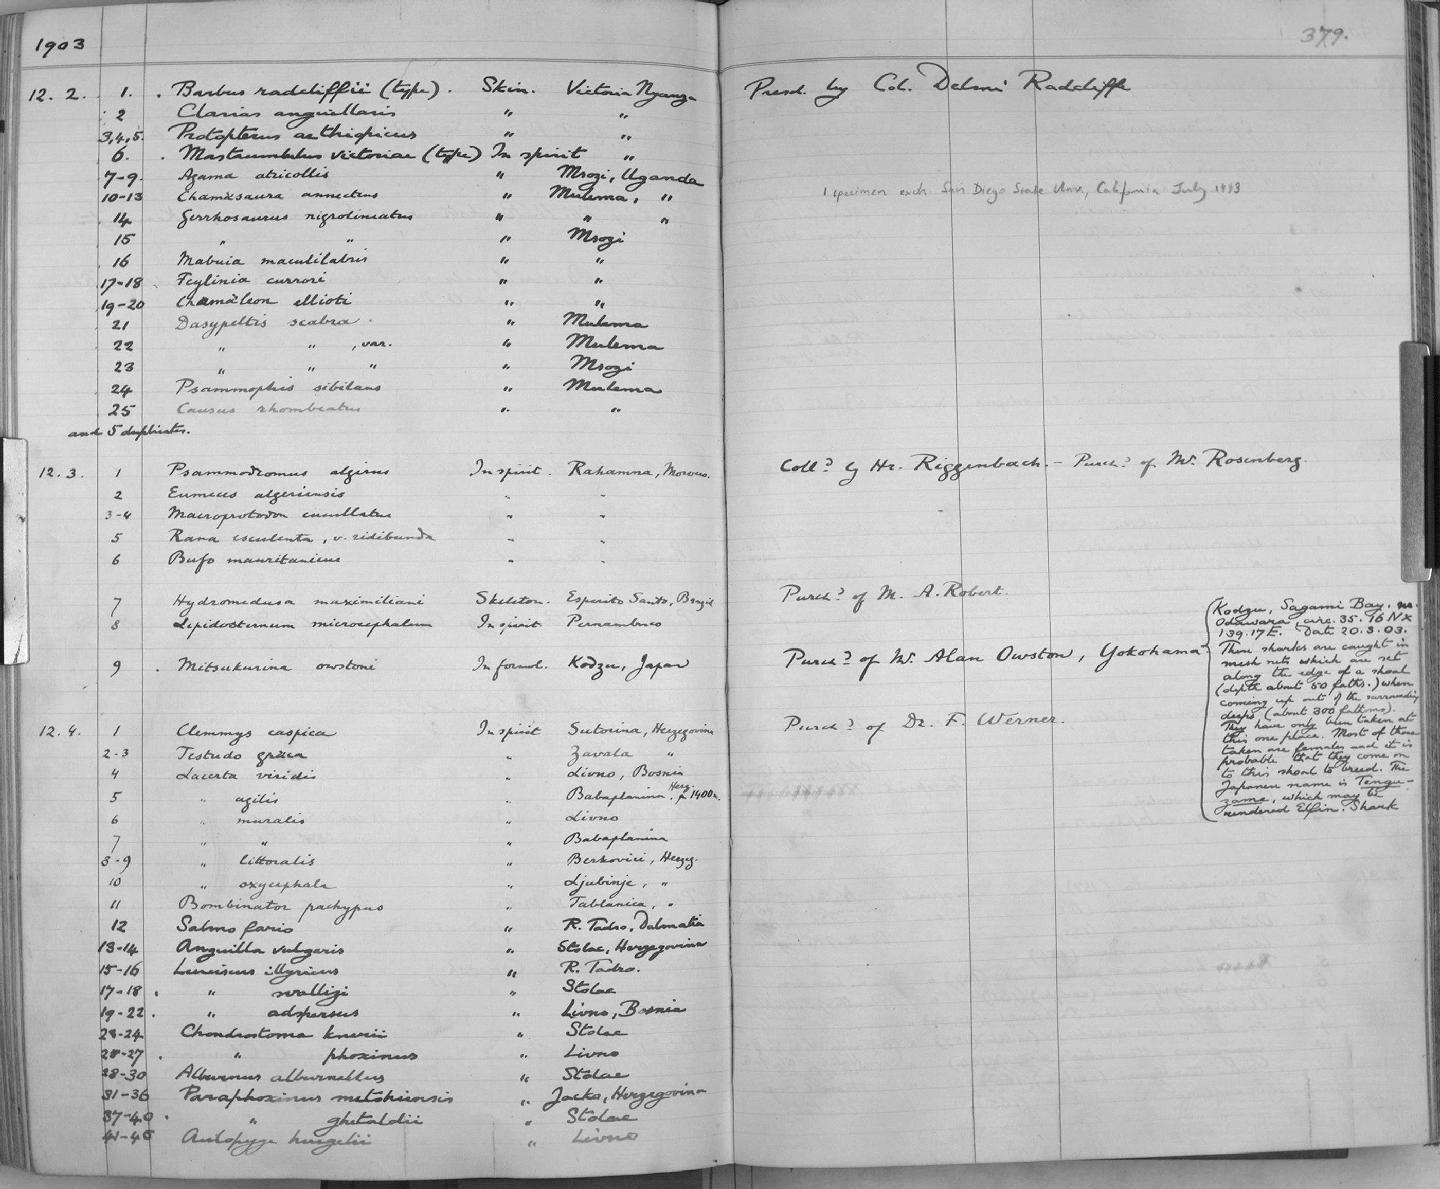 1903
379.
12. 2. 1. Barbus radcliffii (type). Skin. Victoria Nyanza Presd. by Col. Delmé Radcliffe
2 Clarias anguillaris " "
3,4,5. Protopterus aethiopicus " "
6. Mastacembelus victoriae (type) In spirit "
7-9. Agama atricollis " Msozi, Uganda
10-13 Chamæsaura annectens " Mulema, " 1 specimen exch. San Diego State Univ., California July 1993
14 Gerrhosaurus nigrolineatus " " "
15 " " " Msozi
16 Mabuia maculilabris " "
17-18 Feylinia currori " "
19-20 Chamæleon ellioti " "
21 Dasypeltis scabra. " Mulema
22 " " , var. " Mulema
23 " " " " Msozi
24 Psammophis sibilans " Mulema
25 Causus rhombeatus " "
and 5 duplicates.
12. 3. 1 Psammodromus algirus In spirit. Rahamna, Morocco. Colld by Hr. Riggenbach. - Purchd of Mr. Rosenberg.
2 Eumeces algeriensis " "
3-4 Macroprotodon cucullatus " "
5 Rana esculenta, v. ridibunda " "
6 Bufo mauritanicus " "
7 Hydromedusa maximiliani Skeleton. Esperito Santo, Brazil Purchd of M. A. Robert.
8 Lepidosternum microcephalum In spirit Pernambuco
9 Mitsukurina owstoni In formol. Kodzu, Japan Purchd of Mr. Alan Owston, Yokohama
Kodzu, Sagami Bay, nr.
Odawara, circ. 35.16 N x
139.17 E. Date 20.3.03.
These sharks are caught in
mesh nets which are set
along the edge of a shoal
(depth about 50 faths.) when
coming up out of the surrounding
deeps (about 300 fathoms).
They have only been taken at
this one place. Most of those
taken are females and it is
probable that they come on
to this shoal to breed. The
Japanese name is Tengu-
zame, which may be
rendered Elfin-Shark
12. 4. 1 Clemmys caspica In spirit Sutorina, Herzegovina Purchd of Dr. F. Werner.
2-3 Testudo græca " Zavala "
4 Lacerta viridis " Livno, Bosnia
5 " agilis " Babaplanina, Herz. 1400 m.
6 " muralis " Livno
7 " " " Babaplanina
8-9 " littoralis " Berkovici, Herzeg.
10 " oxycephala " Ljubinje, "
11 Bombinator pachypus " Tablanica, "
12 Salmo fario " R. Tadro, Dalmatia
13-14 Anguilla vulgaris " Stolac, Herzegovina
15-16 Leuciscus illyricus " R. Tadro.
17-18 " svallizi " Stolac
19-22. " adspersus " Livno, Bosnia
23-24 Chondrostoma knerii " Stolac
25-27 " phoxinus " Livno
28-30 Alburnus alburnellus " Stolac
31-36 Paraphoxinus metohiensis " Jacka, Herzegovina
37-40 " ghetaldii " Stolac
41-45 Aulopyge huegelii " Livno